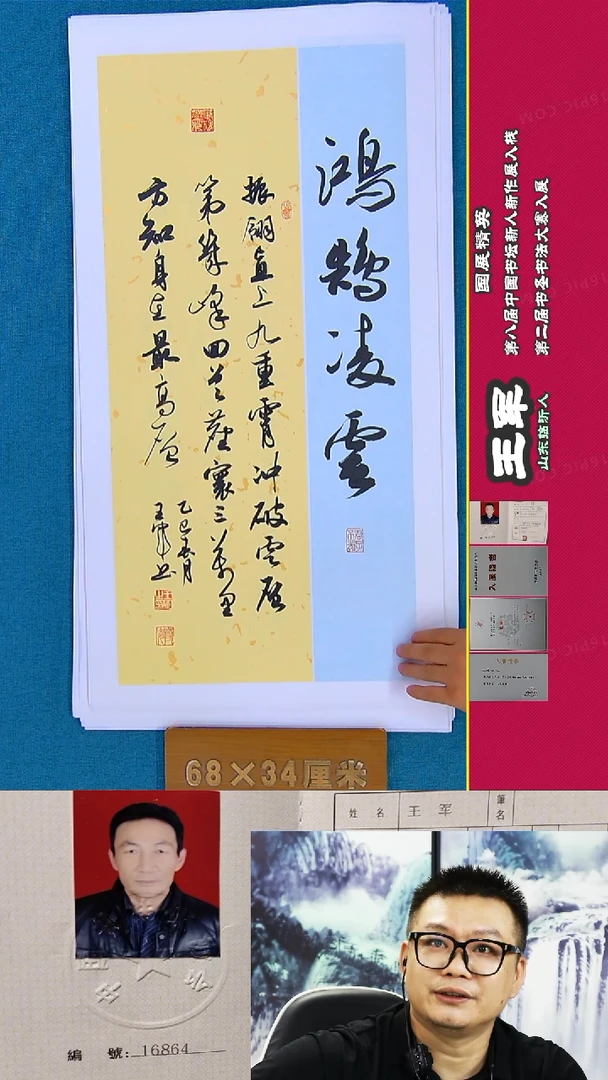 鸿鹄凌雲
振翮直上九重霄冲破雲层
第幾峰回首蒼寰三万里
方知身在最高层
乙巳春月
王军书
68×34厘米
国展精英
第八届中国书坛新人新作展入栈
第二届书圣书法大赛入展
王军
山东临沂人
姓名 王军 筆名
編號:16864